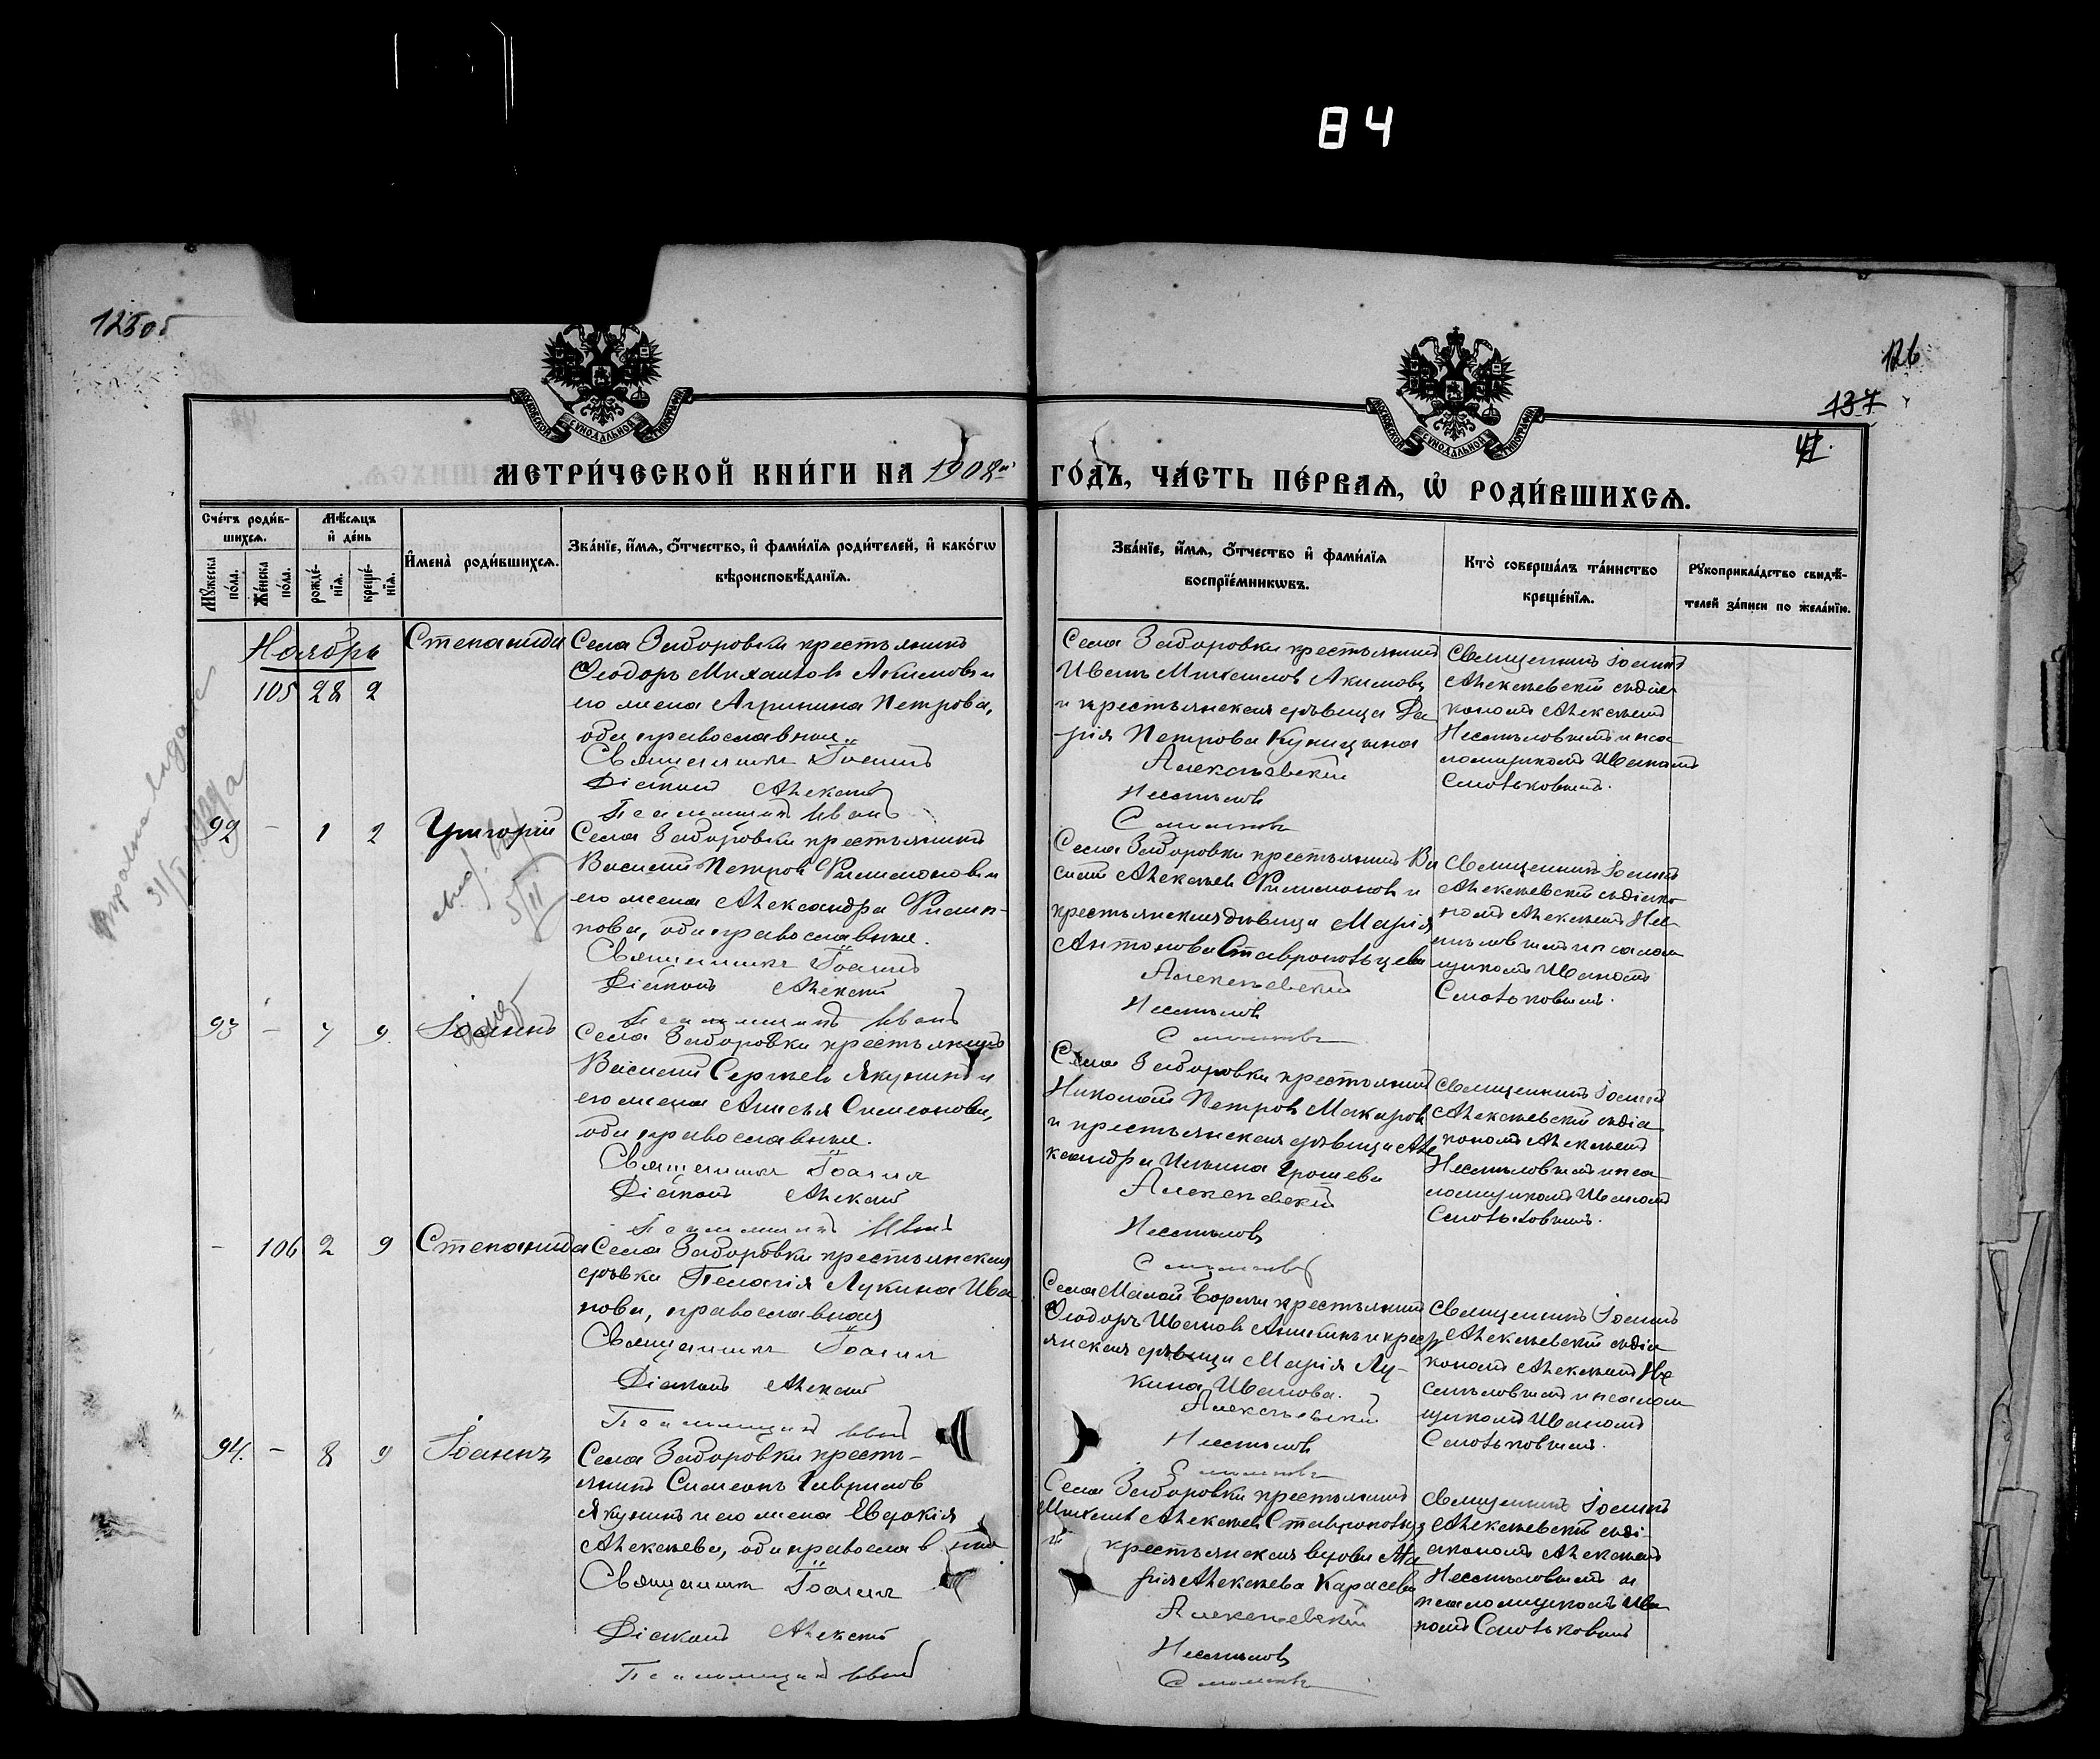 84
125об
126
137
41.
МОСКОВСКОЙ СѴНОДАЛЬНОЙ ТИПОГРАФІИ
МОСКОВСКОЙ СѴНОДАЛЬНОЙ ТИПОГРАФІИ
МЕТРИ́ЧЕСКОЙ КНИ́ГИ НА 1908й ГО́ДЪ, ЧА́СТЬ ПЕ́РВАѦ, Ѡ҆ РОДИ́ВШИХСѦ.
Сче́тъ роди́в-
шихсѧ.
Мꙋ́жеска по́ла.
Же́нска по́ла.
Мѣ́сѧцъ
и҆ де́нь
рожде́-
нїѧ.
креще́-
нїѧ.
И҆мена̀ роди́вшихсѧ.
Зва́нїе, и҆́мѧ, ѻ҆́тчество, и҆ фами́лїѧ роди́телей, и҆ како́гѡ
вѣроисповѣ́данїѧ.
Зва́нїе, и҆́мѧ, ѻ҆́тчество и҆ фами́лїѧ
воспрїе́мникѡвъ.
Кто̀ соверша́лъ та́инство
креще́нїѧ.
Рꙋкоприкла́дство свидѣ́-
телей за́писи по жела́нїю.
Ноябрь
105 28 2
Степанида
Села Заборовки крестьянинъ
Ѳеодоръ Михаиловъ Акимовъ и
его жена Агрипина Петрова,
оба православные.
Священникъ Іоаннъ
Діаконъ Алексѣй
Псаломщикъ Иванъ
Села Заборовки крестьянинъ
Иванъ Михаиловъ Акимовъ
и крестьянская дѣвица Да
рія Петрова Куницына
Алексѣевскій
Несмѣловъ
Священникъ Іоаннъ
Алексѣевскій съ діа
кономъ Алексѣемъ
Несмѣловымъ и пса-
ломщикомъ Иваномъ
92 — 1 2
Григорій
Села Заборовки крестьянинъ
Василій Петровъ Филимоновъ и
его жена Александра Филип-
пова, оба православные.
Священникъ Іоаннъ
Діаконъ Алексѣй
Псаломщикъ Иванъ
Села Заборовки крестьянинъ Ва
силій Алексѣевъ Филимоновъ и
крестьянская дѣвица Марія
Антонова Ставропольцева
Алексѣевскій
Несмѣловъ
Священникъ Іоаннъ
Алексѣевскій съ діако
номъ Алексѣемъ Нес-
мѣловымъ и псалом
щикомъ Иваномъ
93 — 7 9
Іоаннъ
Села Заборовки крестьянинъ
Василій Сергѣевъ Якунинъ и
его жена Анисья Симеонова,
оба православные.
Священникъ Іоаннъ
Діаконъ Алексѣй
Псаломщикъ Иванъ
Села Заборовки крестьянинъ
Николай Петровъ Макаровъ
и крестьянская дѣвица Але
ксандра Ильина Грошева
Алексѣевскій
Несмѣловъ
Священникъ Іоаннъ
Алексѣевскій съ діа
кономъ Алексѣемъ
Несмѣловымъ и пса
ломщикомъ Иваномъ
— 106 2 9
Степанида
Села Заборовки крестьянская
дѣвка Пелагія Лукина Ива
нова, православная
Священникъ Іоаннъ
Діаконъ Алексѣй
Псаломщикъ Иванъ
Села Малой Борлы крестьянинъ
Ѳеодоръ Ивановъ и крест
янская дѣвица Марія Лу-
кина Иванова.
Алексѣевскій
Несмѣловъ
Священникъ Іоаннъ
Алексѣевскій съ діа
кономъ Алексѣемъ Не
смѣловымъ и псалом
щикомъ Иваномъ
94. — 8 9
Іоаннъ
Села Заборовки кресть-
янинъ Симеонъ Гавриловъ
Якунинъ и его жена Евдокія
Алексѣева, оба православные
Священникъ Іоаннъ
Діаконъ Алексѣй
Псаломщикъ Иванъ
Села Заборовки крестьянинъ
Михаилъ Алексѣевъ
и крестьянская вдова Ма
рія Алексѣева Карасева
Алексѣевскій
Несмѣловъ
Священникъ Іоаннъ
Алексѣевскій съ ді-
акономъ Алексѣемъ
Несмѣловымъ и
псаломщикомъ Ива
номъ